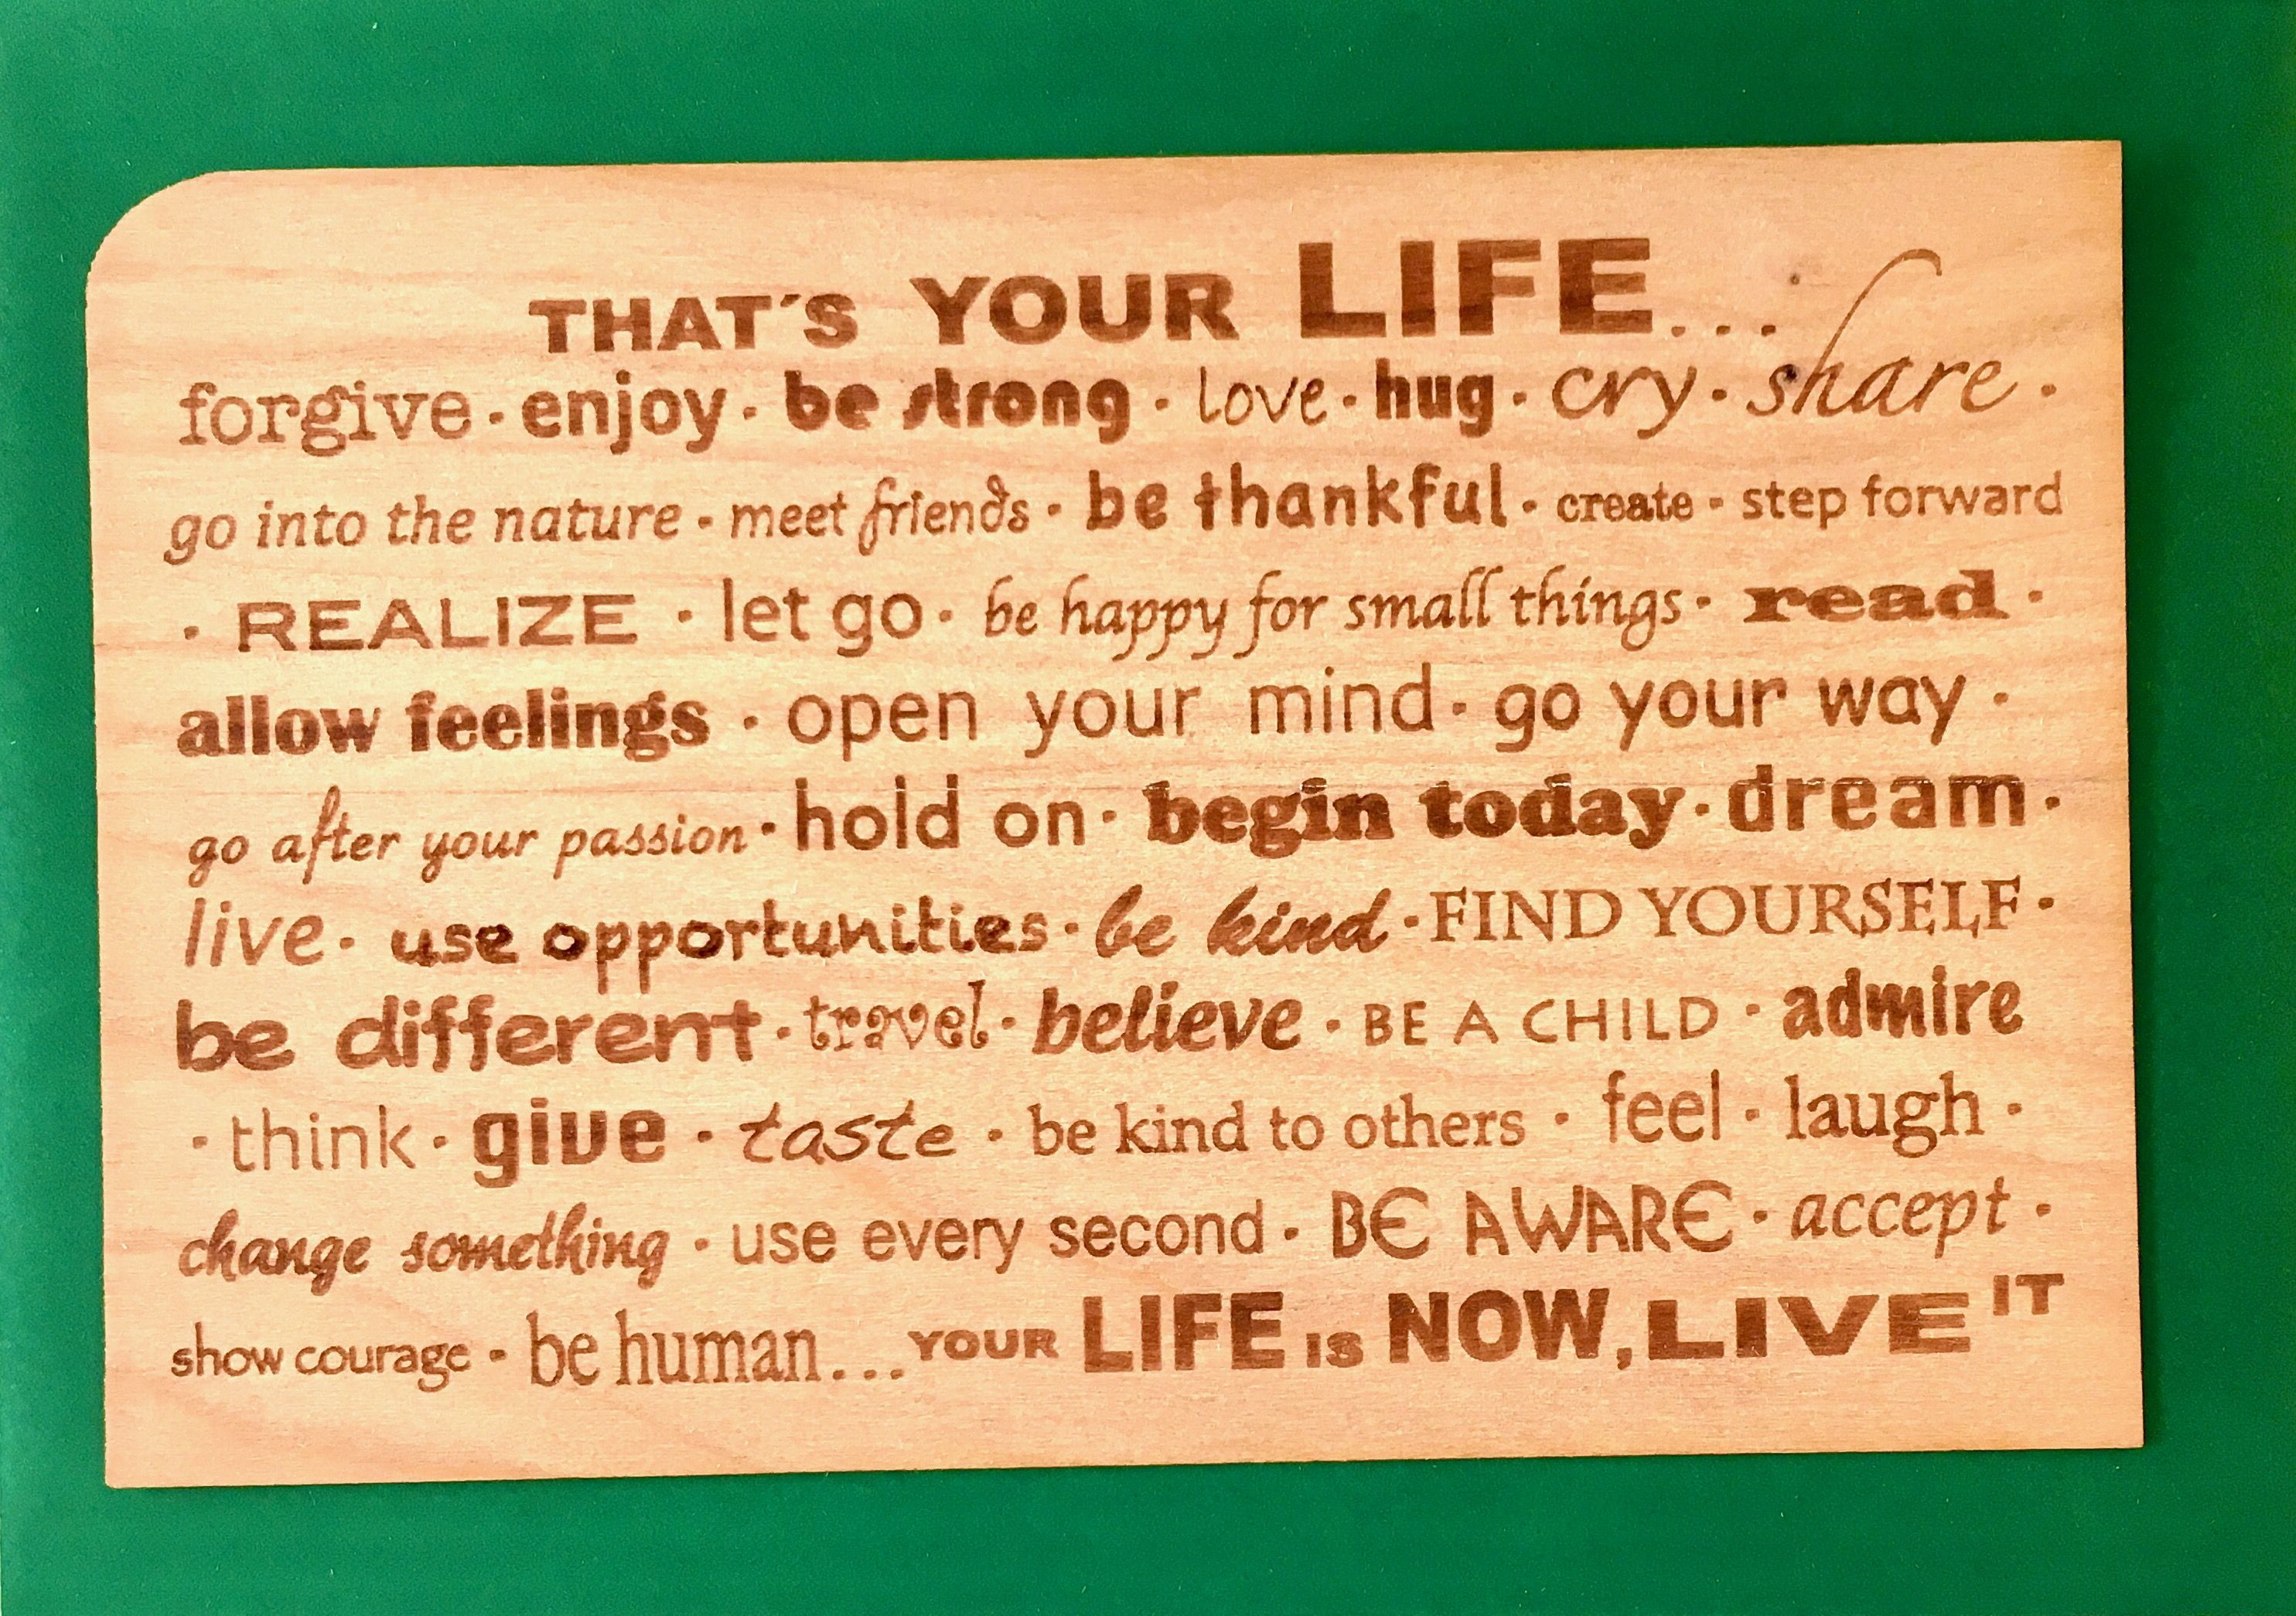 THAT´S YOUR LIFE...
forgive · enjoy · be strong · love · hug · cry · share ·
go into the nature · meet friends · be thankful · create · step forward
· REALIZE · let go · be happy for small things · read ·
allow feelings · open your mind · go your way ·
go after your passion · hold on · begin today · dream ·
live · use opportunities · be kind · FIND YOURSELF ·
be different · travel · believe · BE A CHILD · admire
· think · give · taste · be kind to others · feel · laugh ·
change something · use every second · BE AWARE · accept ·
show courage · be human... YOUR LIFE IS NOW, LIVE IT